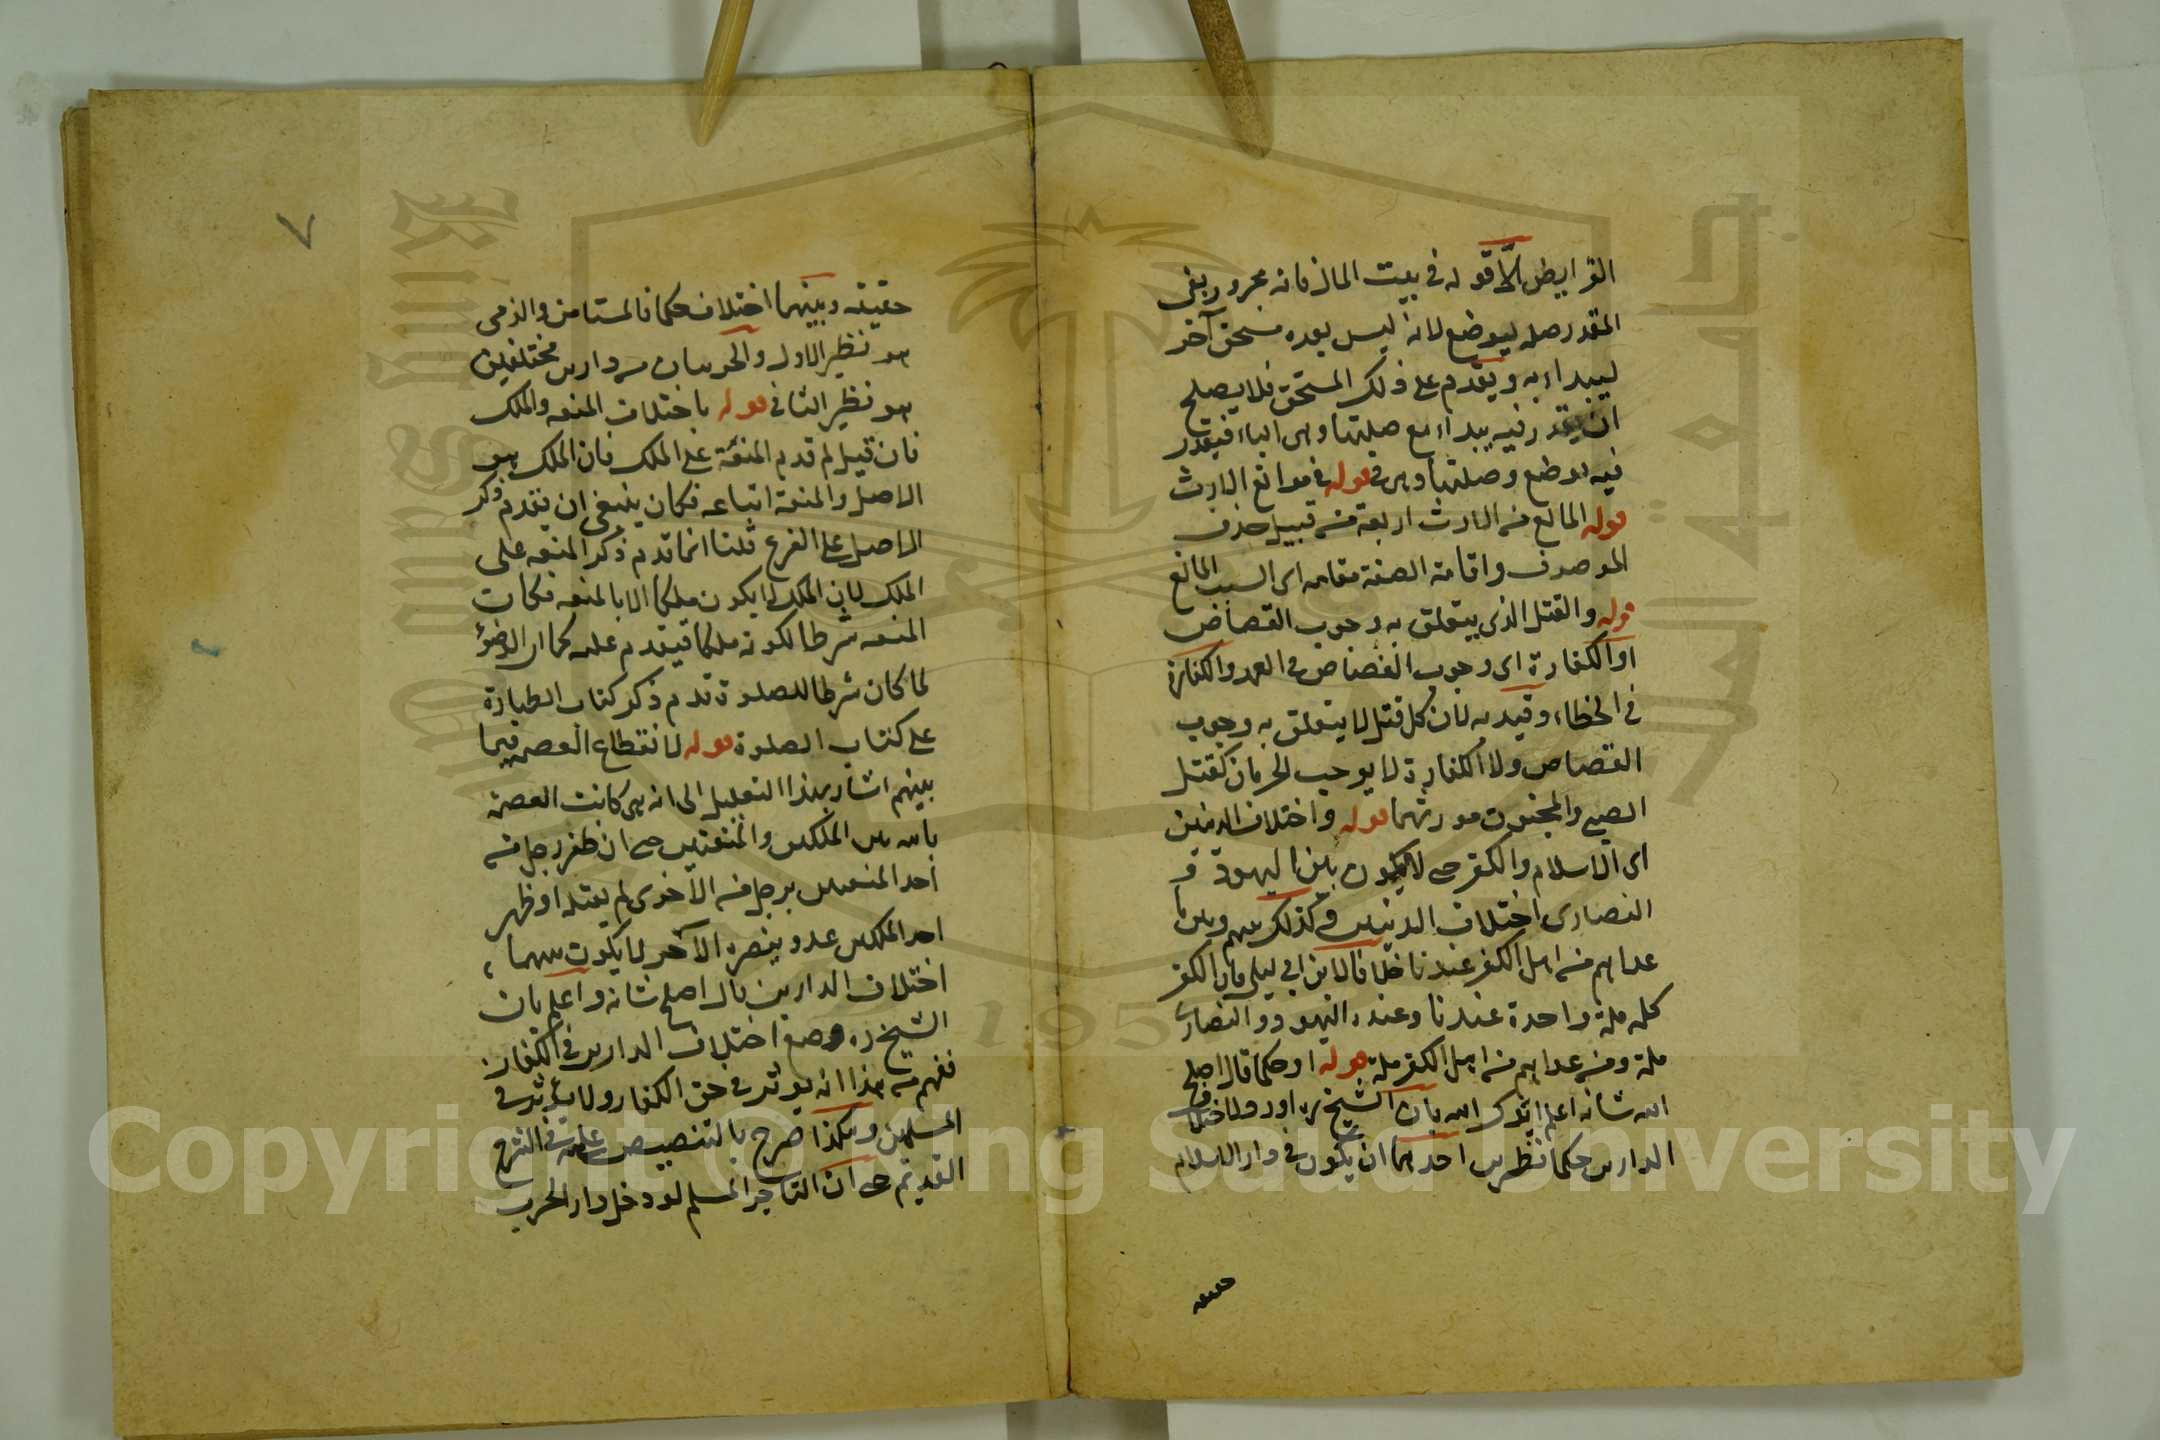 الفرايض الا قوله في بيت المال فانه مجرور بفى
المقدر صله ليوضع لانه ليس بعده مستحق آخر
ليبداء به ويقدم على ذلك المستحق فلا يصلح
ان يقدر فيه يبداء مع صلتها وهى الباء فيقدر
فيه يوضع وصلتها وهى فى قوله في موانع الارث
قوله المانع من الارث اربعة من قبيل حذف
الموصوف واقامة الصفة مقامه اى السبب المانع
قوله والقتل الذى يتعلق به وجوب القصاص
او الكفارة اى وجوب القصاص في العمد والكفارة
في الخطاء وقيد به لان كل قتل لا يتعلق به وجوب
القصاص ولا الكفارة لا يوجب الحرمان كقتل
الصبي والمجنون مورثهما قوله واختلاف الدينين
اى الاسلام والكفر حى لا يكون بين اليهود و
النصارى اختلاف الدينين وكذلك بينهم وبين ما
عداهم من اهل الكفر عندنا خلافا لابن ابي ليلى فان الكفر
كله ملة واحدة عندنا وعنده اليهود والنصارى
ملة ومن عداهم من اهل الكفر ملة قوله او حكما قال اصلح
الله شانه اعلم ايدك الله بان الشيخ ره اورد لاختلاف
الدارين حكما نظيرين احدهما ان يكون في دار الاسلام
حقيقه
٧
حقيقه وبينهما اختلاف حكما فالمستامن والذمى
هو نظير الاول والحربيان من دارين مختلفين
هو نظير الثاني قوله باختلاف المنعه والملك
فان قيل لم قدم المنعة على الملك فان الملك هو
الاصل والمنعة اتباعه فكان ينبغى ان يقدم ذكر
الاصل على الفرع قلنا انما قدم ذكر المنعه على
الملك لان الملك لا يكون ملكا الا بالمنعه فكانت
المنعه شرطا لكونه ملكا فيقدم عليه كما ان الوضوء
لما كان شرطا للصلوة قدم ذكر كتاب الطهارة
على كتاب الصلوة قوله لانقطاع العصمه فيما
بينهم اشار بهذا التعليل الى انه متى كانت العصمة
باقيه بين الملكين والمنعتين حى ان ظفر رجل من
احد المنعتين برجل من الاخرى لم يقتله او ظهر
احد الملكين عدو ينصره الآخر لا يكون بينهما
اختلاف الدارين قال اصلح شانه واعلم بان
الشيخ ره وضع اختلاف الدارين في الكفار
ففهم من هذا انه يوثر في حق الكفار ولا يوثر في
المسلمين وهكذا صرح بالتنصيص عليه في الشرح
القديم حى ان التاجر المسلم لو دخل دار الحرب
Copyright © King Saud University
1957